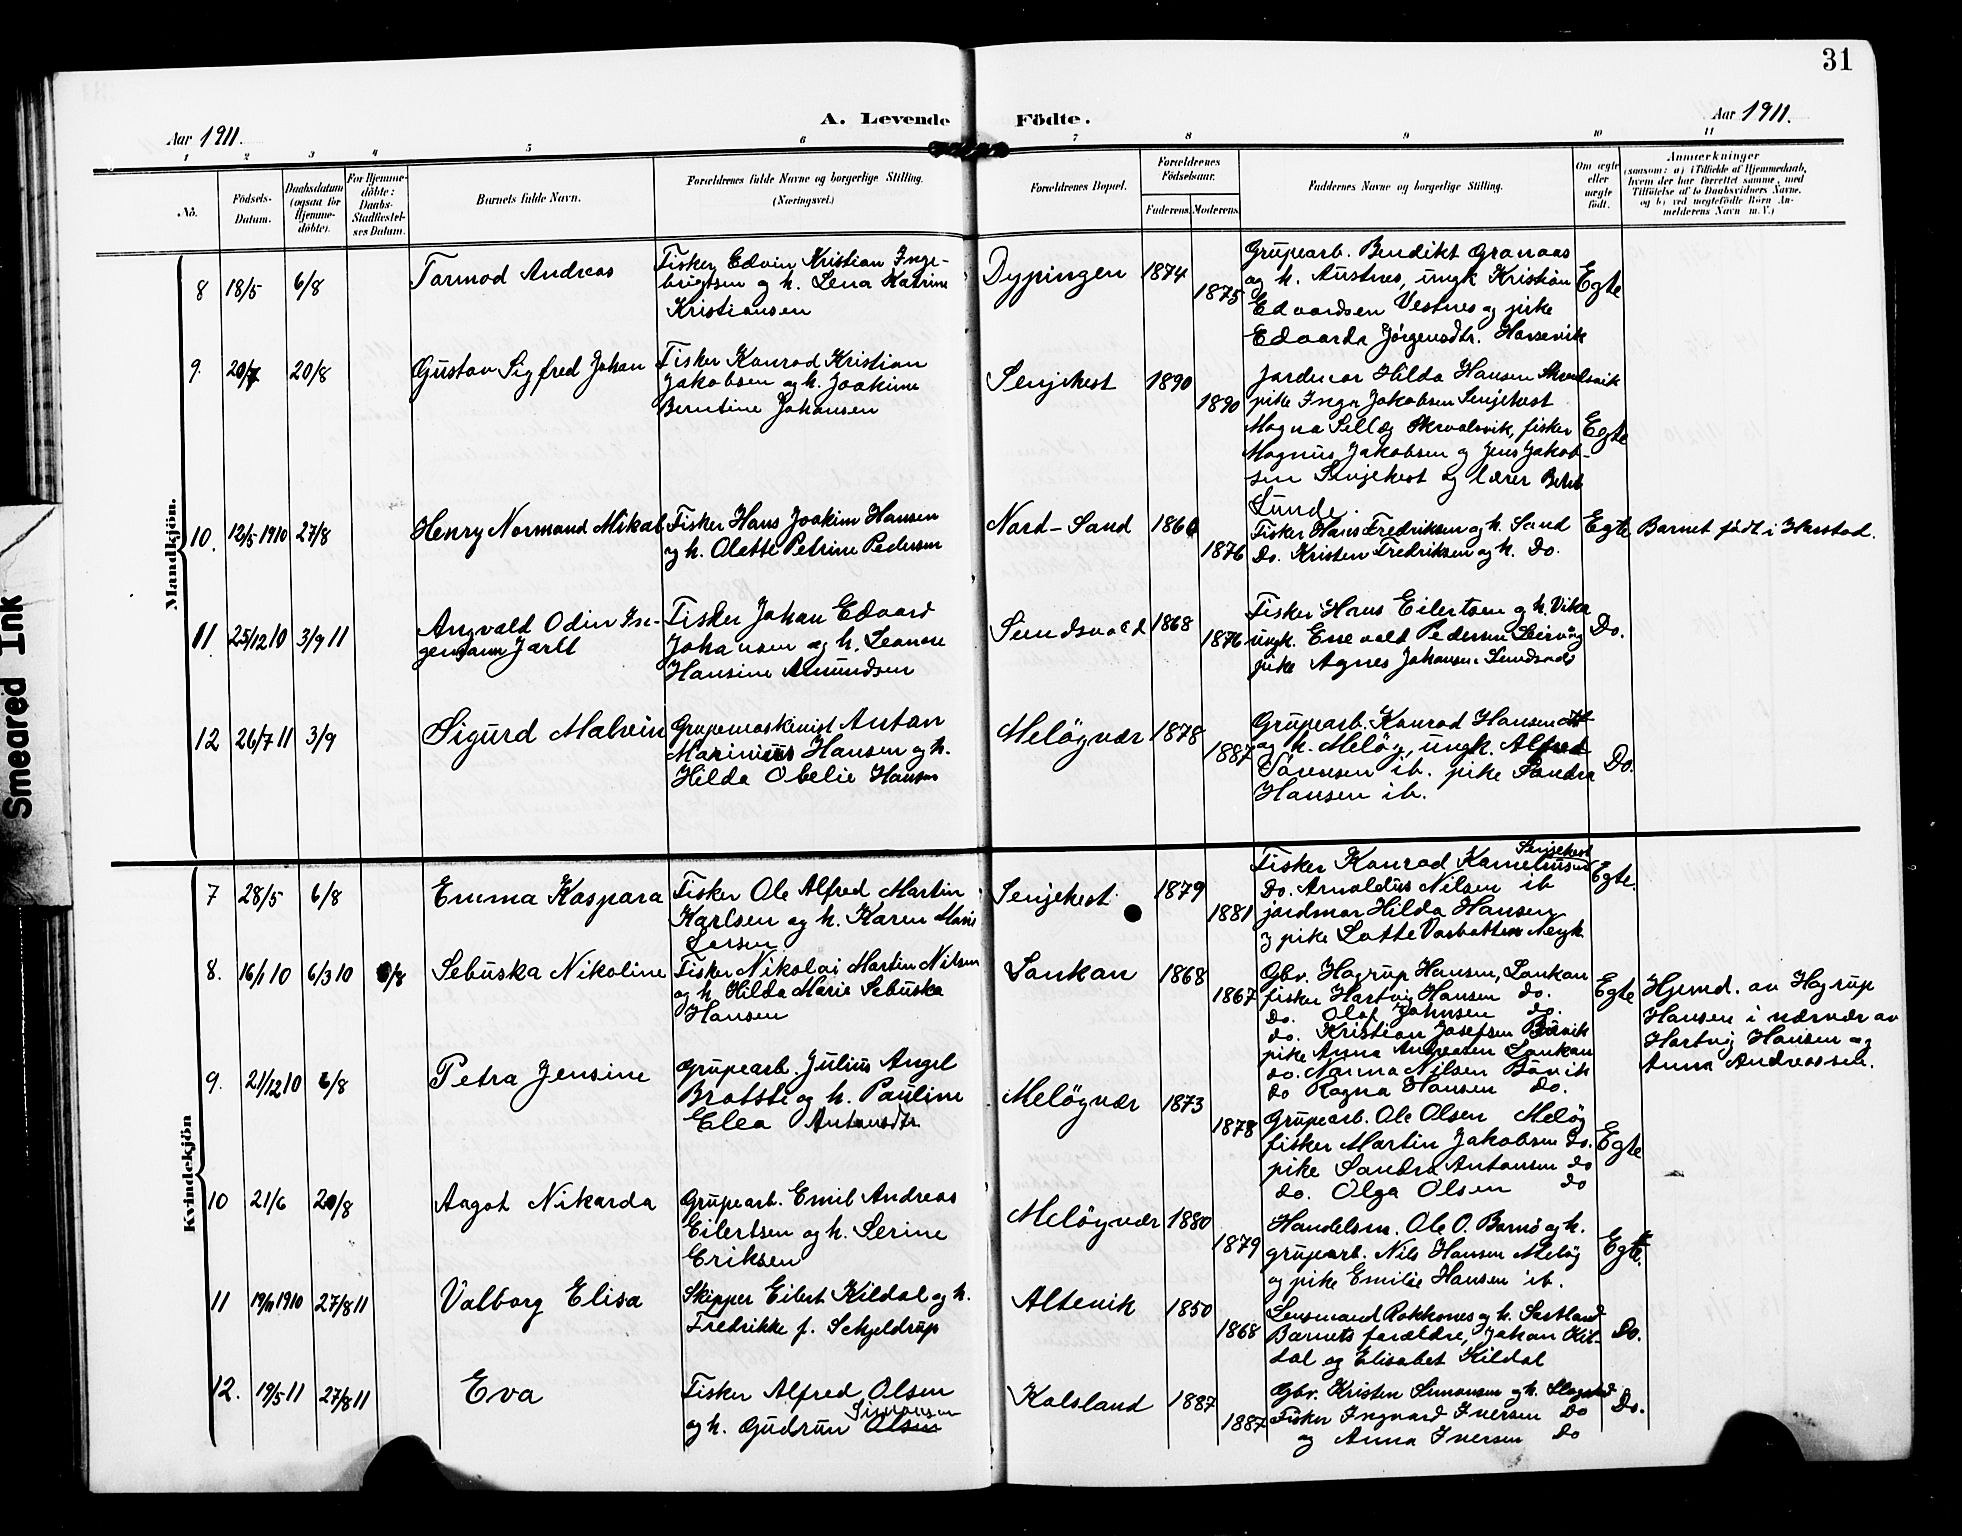 31
A. Levende Födte.
Aar 1911.
Aar 1911.
1 2 3 4 5 6 7 8 9 10 11
No.
Födsels-
Datum.
Daabsdatum
(ogsaa for
Hjemme-
döbte).
For Hjemme-
döbte:
Daabs-
Stadfæstel-
ses Datum.
Barnets fulde Navn.
Forældrenes fulde Navne og borgerlige Stilling.
(Næringsvei.)
Forældrenes Bopæl.
Forældrenes
Födselsaar.
Faderens. Moderens.
Faddernes Navne og borgerlig Stilling.
Om ægte
eller
uægte
födt.
Anmærkninger
(saasom: a) i Tilfælde af Hjemmedaab,
hvem der har forrettet samme, med
Tilföielse af to Daabsvidners Navne.
og b) ved uegtefödte Börn An-
melderens Navn m. V.)
Mandkjön.
8 18/5 6/8
Tarmod Andreas
Fisker Edvin Kristian Inge-
brigtsen og h. Lena Katrine
Kristiansen
Dypingen 1874
1875
Grupearb. Bendikt Granaas
og h. Austnes, ungk Kristian
Edvardsen Vestnes og pike
Edvarda Jørgensdtr. Harsevik
Egte
9. 20/7 20/8
Gustav Sigfred Johan
Fisker Konrad Kristian
Jakobsen og h. Joakine
Berntine Johansen
Senjehest 1890
1890
Jordmor Hilda Hansen
pike Inga Jakobsen Senjehest
Magna fisker
Magnus Jakobsen og Jens Jakob-
sen Senjehest og lærer
Lunde.
Egte
10. 12/5 1910 27/8
Henry Normand Mikal
Fisker Hans Joakim Hansen
og h. Olette Petrine Pedersen
Nord-Sand
1876
Fisker Hans Fredriksen og h. Sand
Do. Kristen Fredriksen og h. Do.
Egte
Barnet født i Harstad.
11 25/12 10 3/9 11
Angvald Odin In-
gemann Jarll
Fisker Johan Edvard
Johansen og h. Leanore
Hansine Amundsen
Sundsvold 1868
1876
Fisker Hans Eilertsen og h. Vika
ungk. Enevald Pedersen Leirvåg
pike Agnes Johansen Sundsvold
Do.
12 26/7 11 3/9
Sigurd Malvin
Grupemaskinist Anton
Marinius Hansen og h.
Hilda Obelie Hansen
Meløyvær 1878
1887
Grupearb. Konrad Hansen
og h. Meløy, ungk. Alfred
Sørensen ib. pike Sandra
Hansen ib.
Do.
Kvindekjön
7 28/5 6/8
Emma Kaspara
Fisker Ole Alfred Martin
Karlsen og h. Karen Marie
Larsen
Senjehest 1879
1881
Senjehest
Fisker Konrad Kornelius
Do. Arnoldus Nilsen ib
jordmor Hilda Hansen
og pike Lotte
Egte.
8. 16/1 10 6/3 10 6/8
Sebuska Nikoline
Fisker Nikolai Martin Nilsen
og h. Hilda Marie Sebuska
Hansen
Lankan 1868
1867
Gbr. Hagrup Hansen, Lankan
fisker Hartvig Hansen do.
Do. Olaf Johnsen do.
do. Kristian Josefsen Bøvik
pike Anna Andreasen Lankan
do. Narma Nilsen Bøvik
do Ragna Hansen do.
Egte
Hjemd. av Hagrup
Hansen i nærvær av
Hartvig Hansen og
Anna Andreassen.
9. 21/12 10 6/8
Petra Jensine
Grupearb. Julius Angel
Bratsti og h. Pauline
Elea Antonsdtr
Meløyvær 1873
1878
Grupearb. Ole Olsen Meløy
fisker Martin Jakobsen do.
pike Sandra Antonsen do
do. Olga Olsen do
Egte
10 21/6 20/8
Aagot Nikarda
Grupearb. Emil Andreas
Eilertsen og h. Serine
Eriksen
Meløyvær 1880
1879
Handelsm. Ole O. Barnø og h.
grupearb. Nils Hansen Meløy
og pike Emilie Hansen ib.
Egte.
11 19/11 1910 27/8 11
Valborg Elisa
Skipper Eilert Kildal og h.
Fredrikke f. Schjeldrup
Altevik 1850
1868
Lensmand Rokkones og h. Sørtland
Barnets forældre, Johan Kil-
dal og Elisabet Kildal
Do.
12. 19/5 11 27/8 11
Eva
Fisker Alfred Olsen
Simonsen
og h. Gudrun Olsen
Kalsland 1887
1887
Gbr. Kristen Simonsen og h.
Fisker Ingvard Iversen Do
og Anna Iversen Do
Do.
Smeared Ink